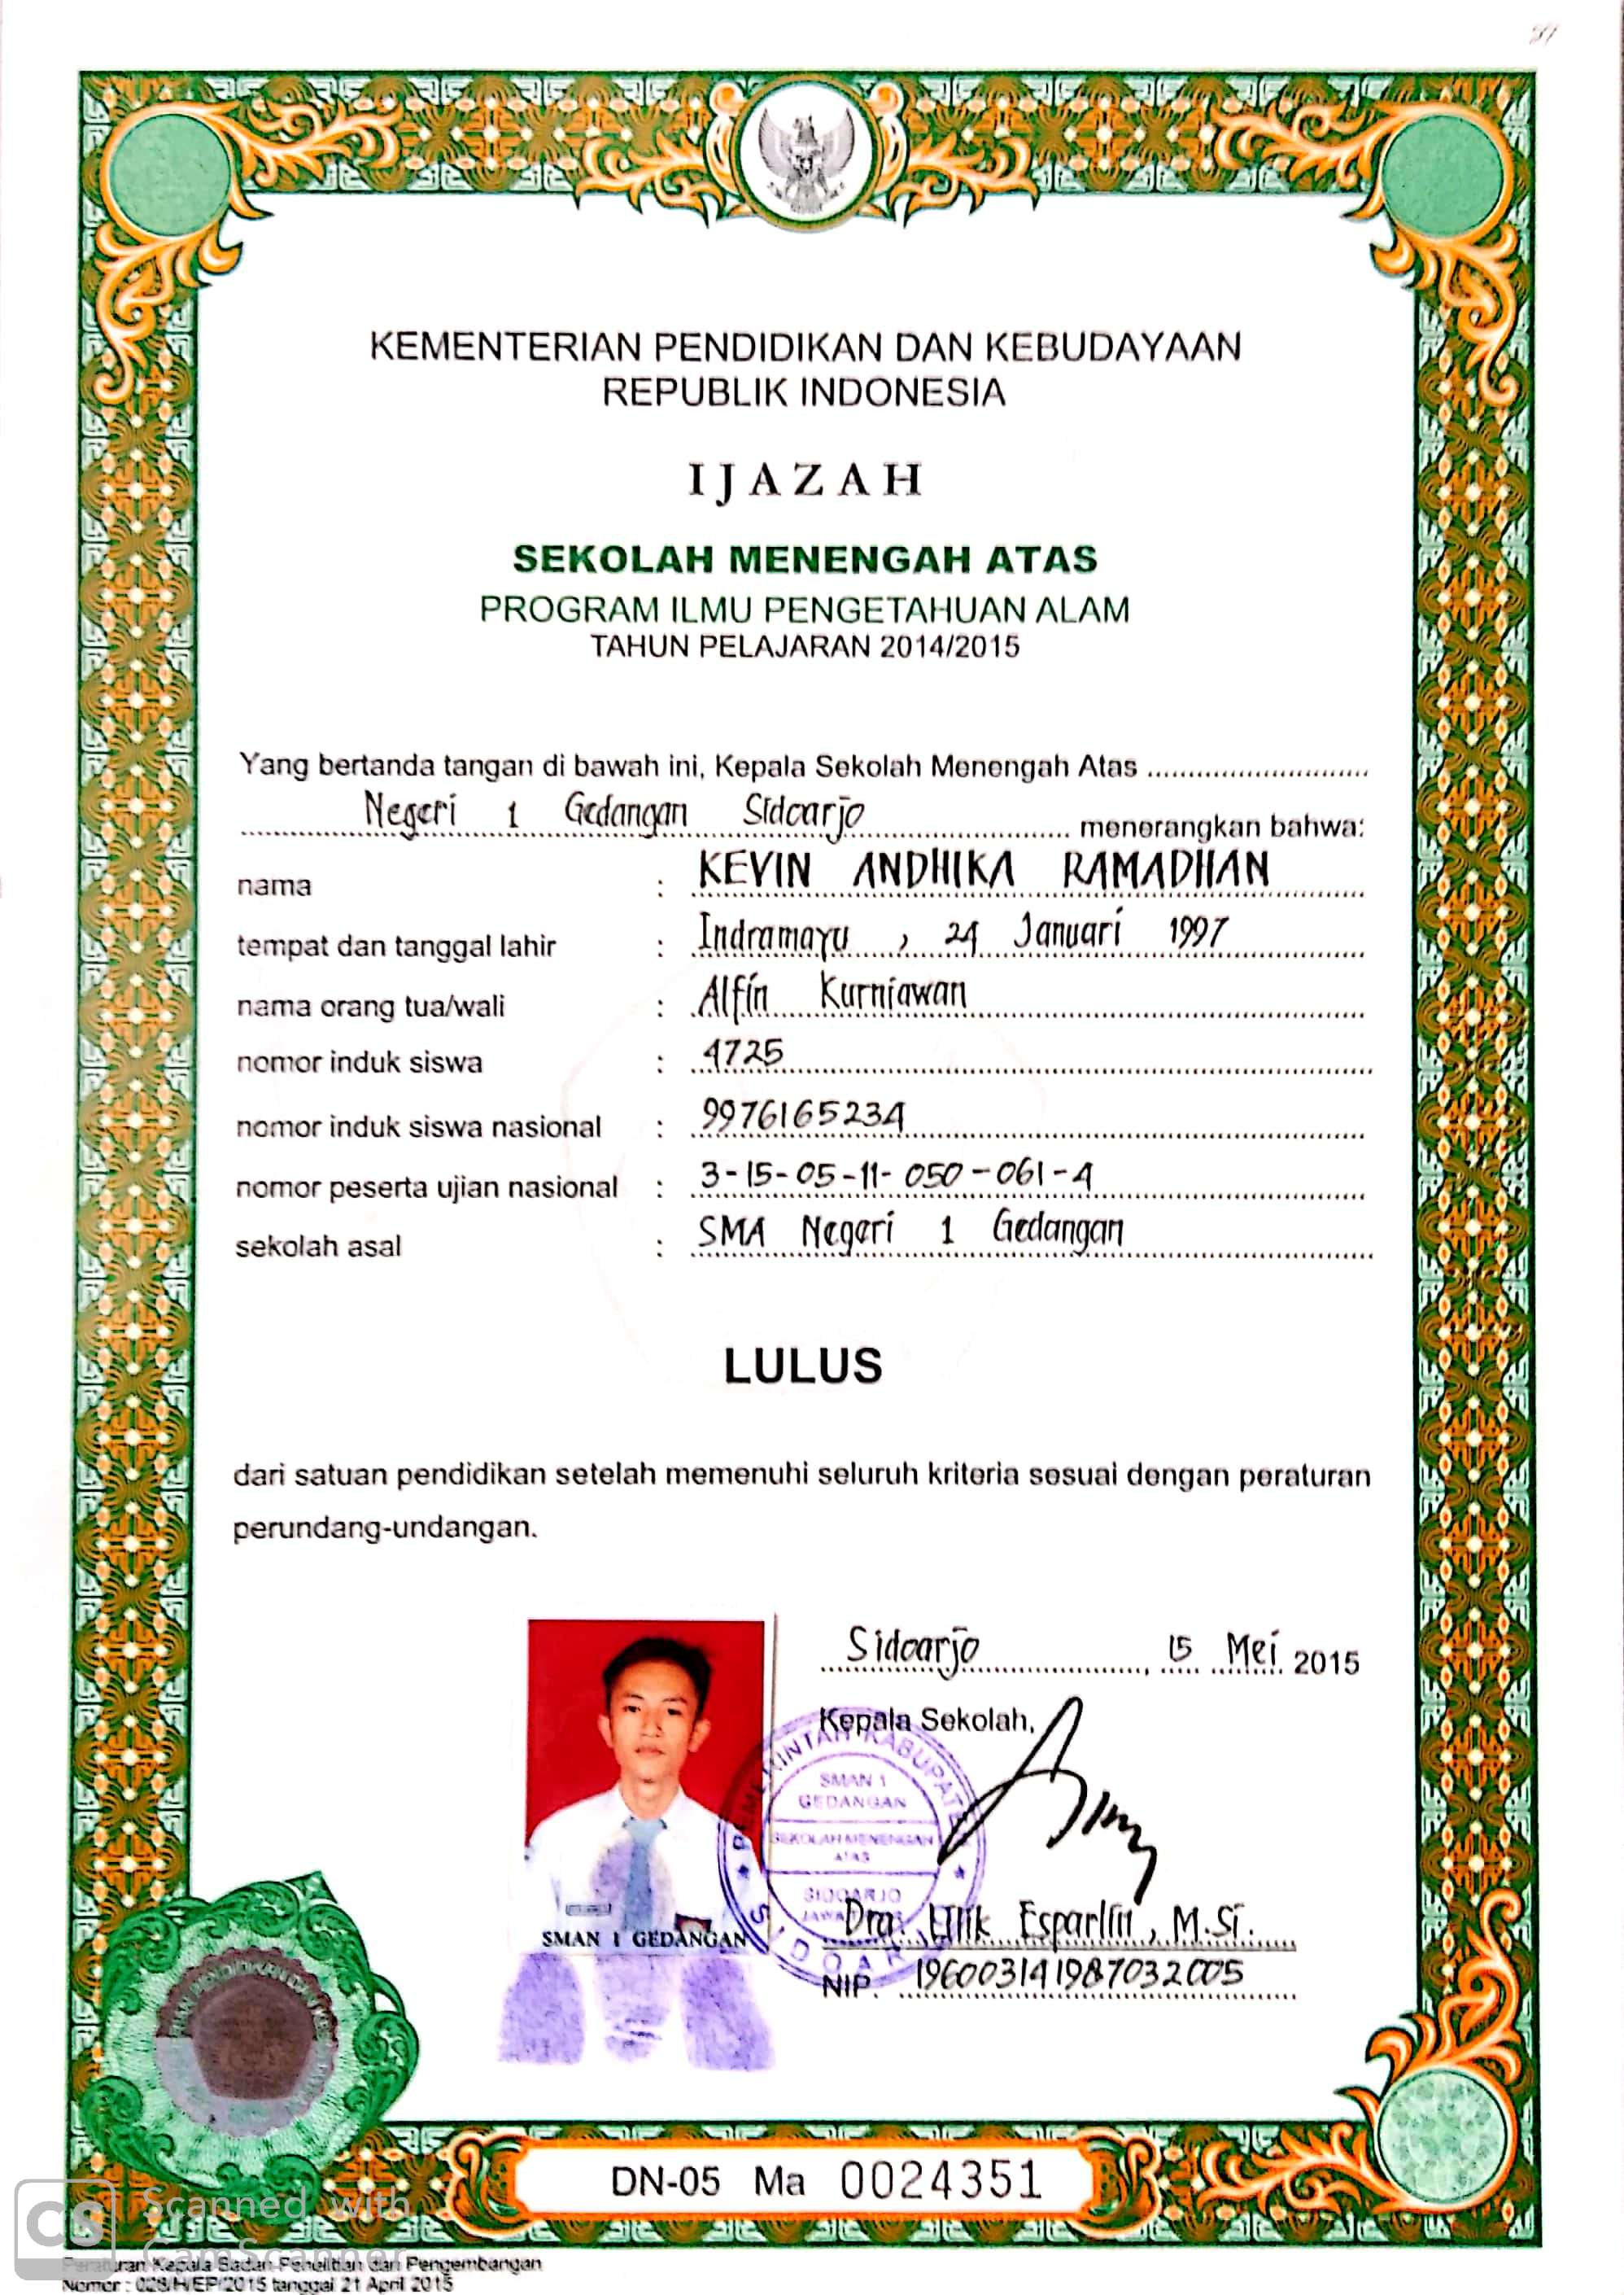 KEMENTERIAN PENDIDIKAN DAN KEBUDAYAAN
REPUBLIK INDONESIA
IJAZAH
SEKOLAH MENENGAH ATAS
PROGRAM ILMU PENGETAHUAN ALAM
TAHUN PELAJARAN 2014/2015
Yang bertanda tangan di bawah ini, Kepala Sekolah Menengah Atas
Negeri 1 Gedangan Sidoarjo menerangkan bahwa:
nama : KEVIN ANDHIKA RAMADHAN
tempat dan tanggal lahir : Indramayu, 24 Januari 1997
nama orang tua/wali : Alfin Kurniawan
nomor induk siswa : 4725
nomor induk siswa nasional : 9976165234
nomor peserta ujian nasional : 3-15-05-11-050-061-4
sekolah asal : SMA Negeri 1 Gedangan
LULUS
dari satuan pendidikan setelah memenuhi seluruh kriteria sesuai dengan peraturan
perundang-undangan.
Sidoarjo, 15 Mei 2015
Kepala Sekolah,
PEMERINTAH KABUPATEN
SMAN 1
GEDANGAN
SEKOLAH MENENGAH
ATAS
SIDOARJO
SIDOARJO
Dra. Esparlin, M.Si.
NIP. 196003141987032005
SMAN 1 GEDANGAN
DN-05 Ma 0024351
Scanned with
CamScanner
CS
Peraturan Kepala Badan Penelitian dan Pengembangan
Nomor : 028/H/EP/2015 tanggal 21 April 2015